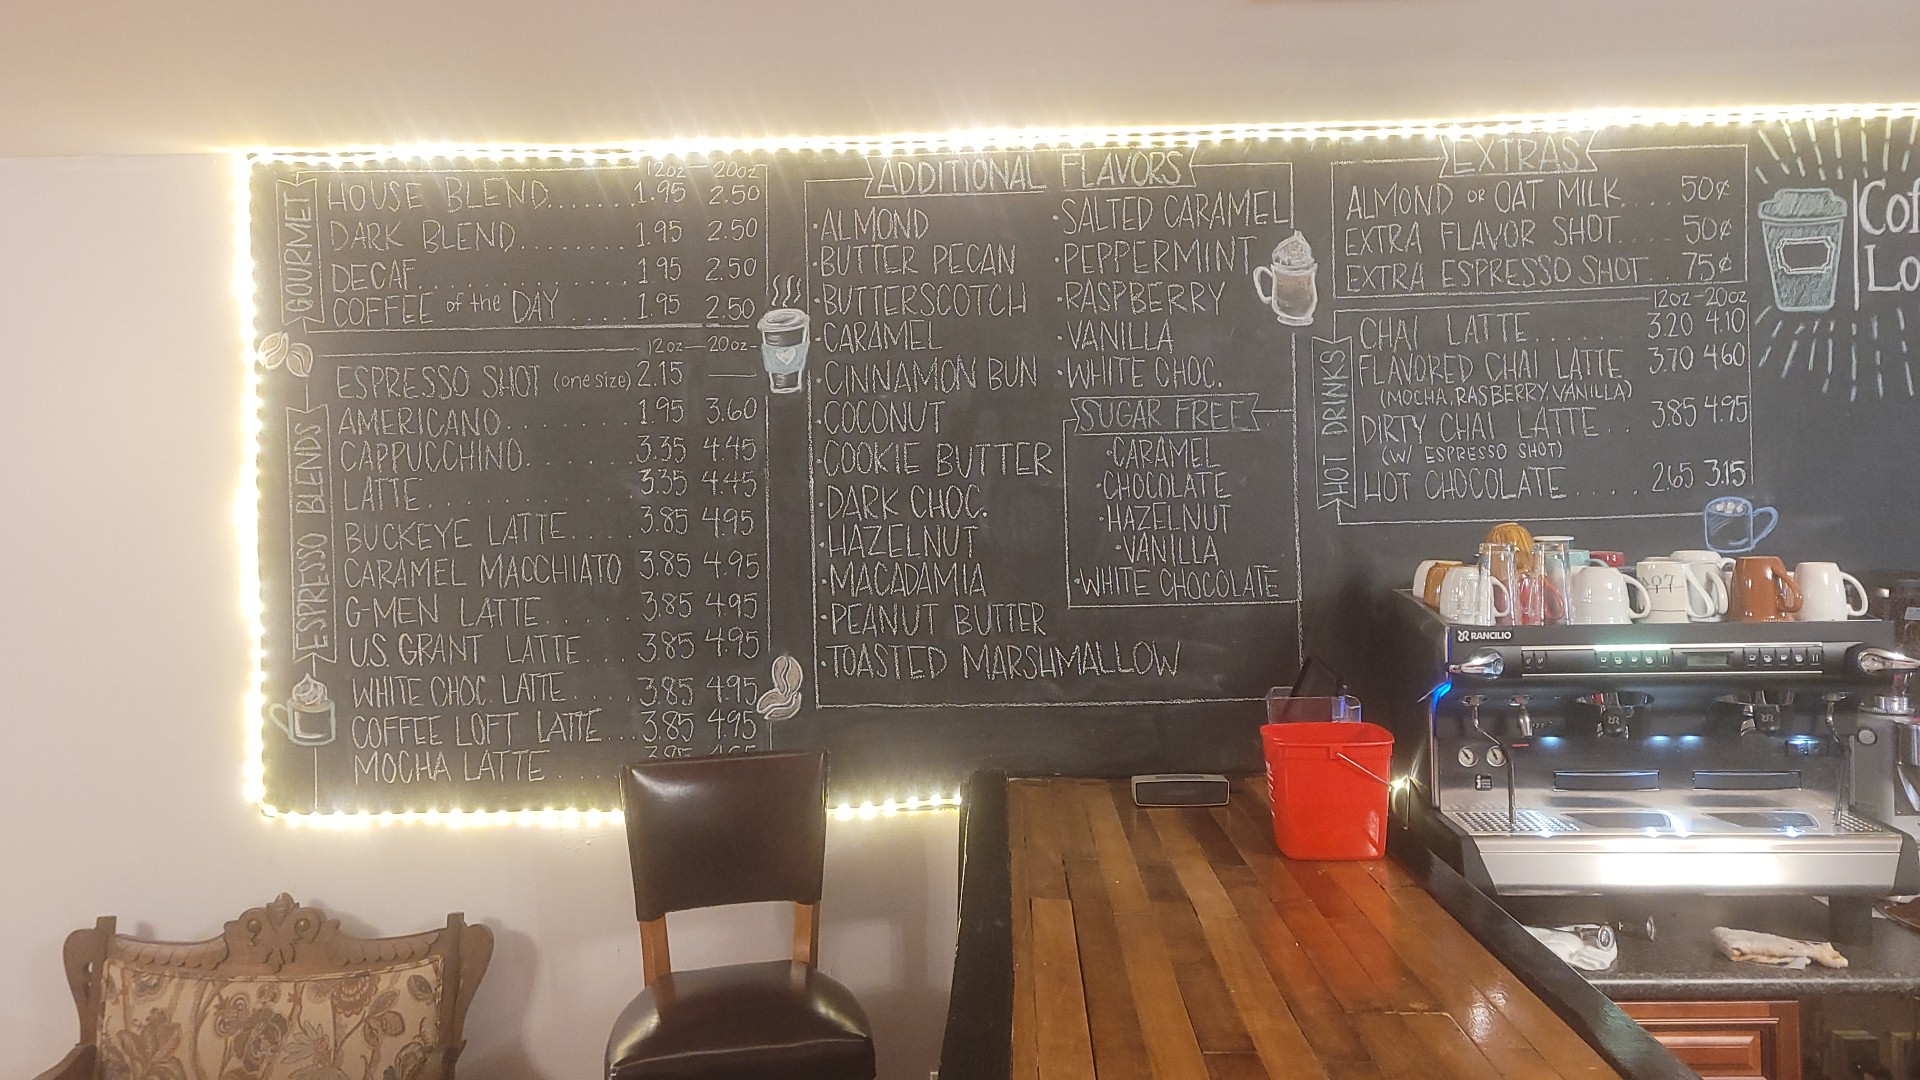 GOURMET
12oz — 20oz
HOUSE BLEND....... 1.95 2.50
DARK BLEND......... 1.95 2.50
DECAF............... 1.95 2.50
COFFEE of the DAY .... 1.95 2.50
ESPRESSO BLENDS
12oz — 20oz
ESPRESSO SHOT (one size) 2.15 —
AMERICANO........ 1.95 3.60
CAPPUCCHINO...... 3.35 4.45
LATTE............ 3.35 4.45
BUCKEYE LATTE.... 3.85 4.95
CARAMEL MACCHIATO 3.85 4.95
G-MEN LATTE...... 3.85 4.95
U.S. GRANT LATTE... 3.85 4.95
WHITE CHOC. LATTE.... 3.85 4.95
COFFEE LOFT LATTE... 3.85 4.95
MOCHA LATTE ....
ADDITIONAL FLAVORS
·ALMOND
·BUTTER PECAN
·BUTTERSCOTCH
·CARAMEL
·CINNAMON BUN
·COCONUT
·COOKIE BUTTER
·DARK CHOC.
·HAZELNUT
·MACADAMIA
·PEANUT BUTTER
·TOASTED MARSHMALLOW
·SALTED CARAMEL
·PEPPERMINT
·RASPBERRY
·VANILLA
·WHITE CHOC.
SUGAR FREE
·CARAMEL
·CHOCOLATE
·HAZELNUT
·VANILLA
·WHITE CHOCOLATE
EXTRAS
ALMOND OR OAT MILK.... 50¢
EXTRA FLAVOR SHOT.... 50¢
EXTRA ESPRESSO SHOT.. 75¢
HOT DRINKS
12oz-20oz
CHAI LATTE..... 3.20 4.10
FLAVORED CHAI LATTE 3.70 4.60
(MOCHA, RASBERRY, VANILLA)
DIRTY CHAI LATTE.. 3.85 4.95
(W/ ESPRESSO SHOT)
HOT CHOCOLATE.... 2.65 3.15
Cof
Lo
RANCILIO